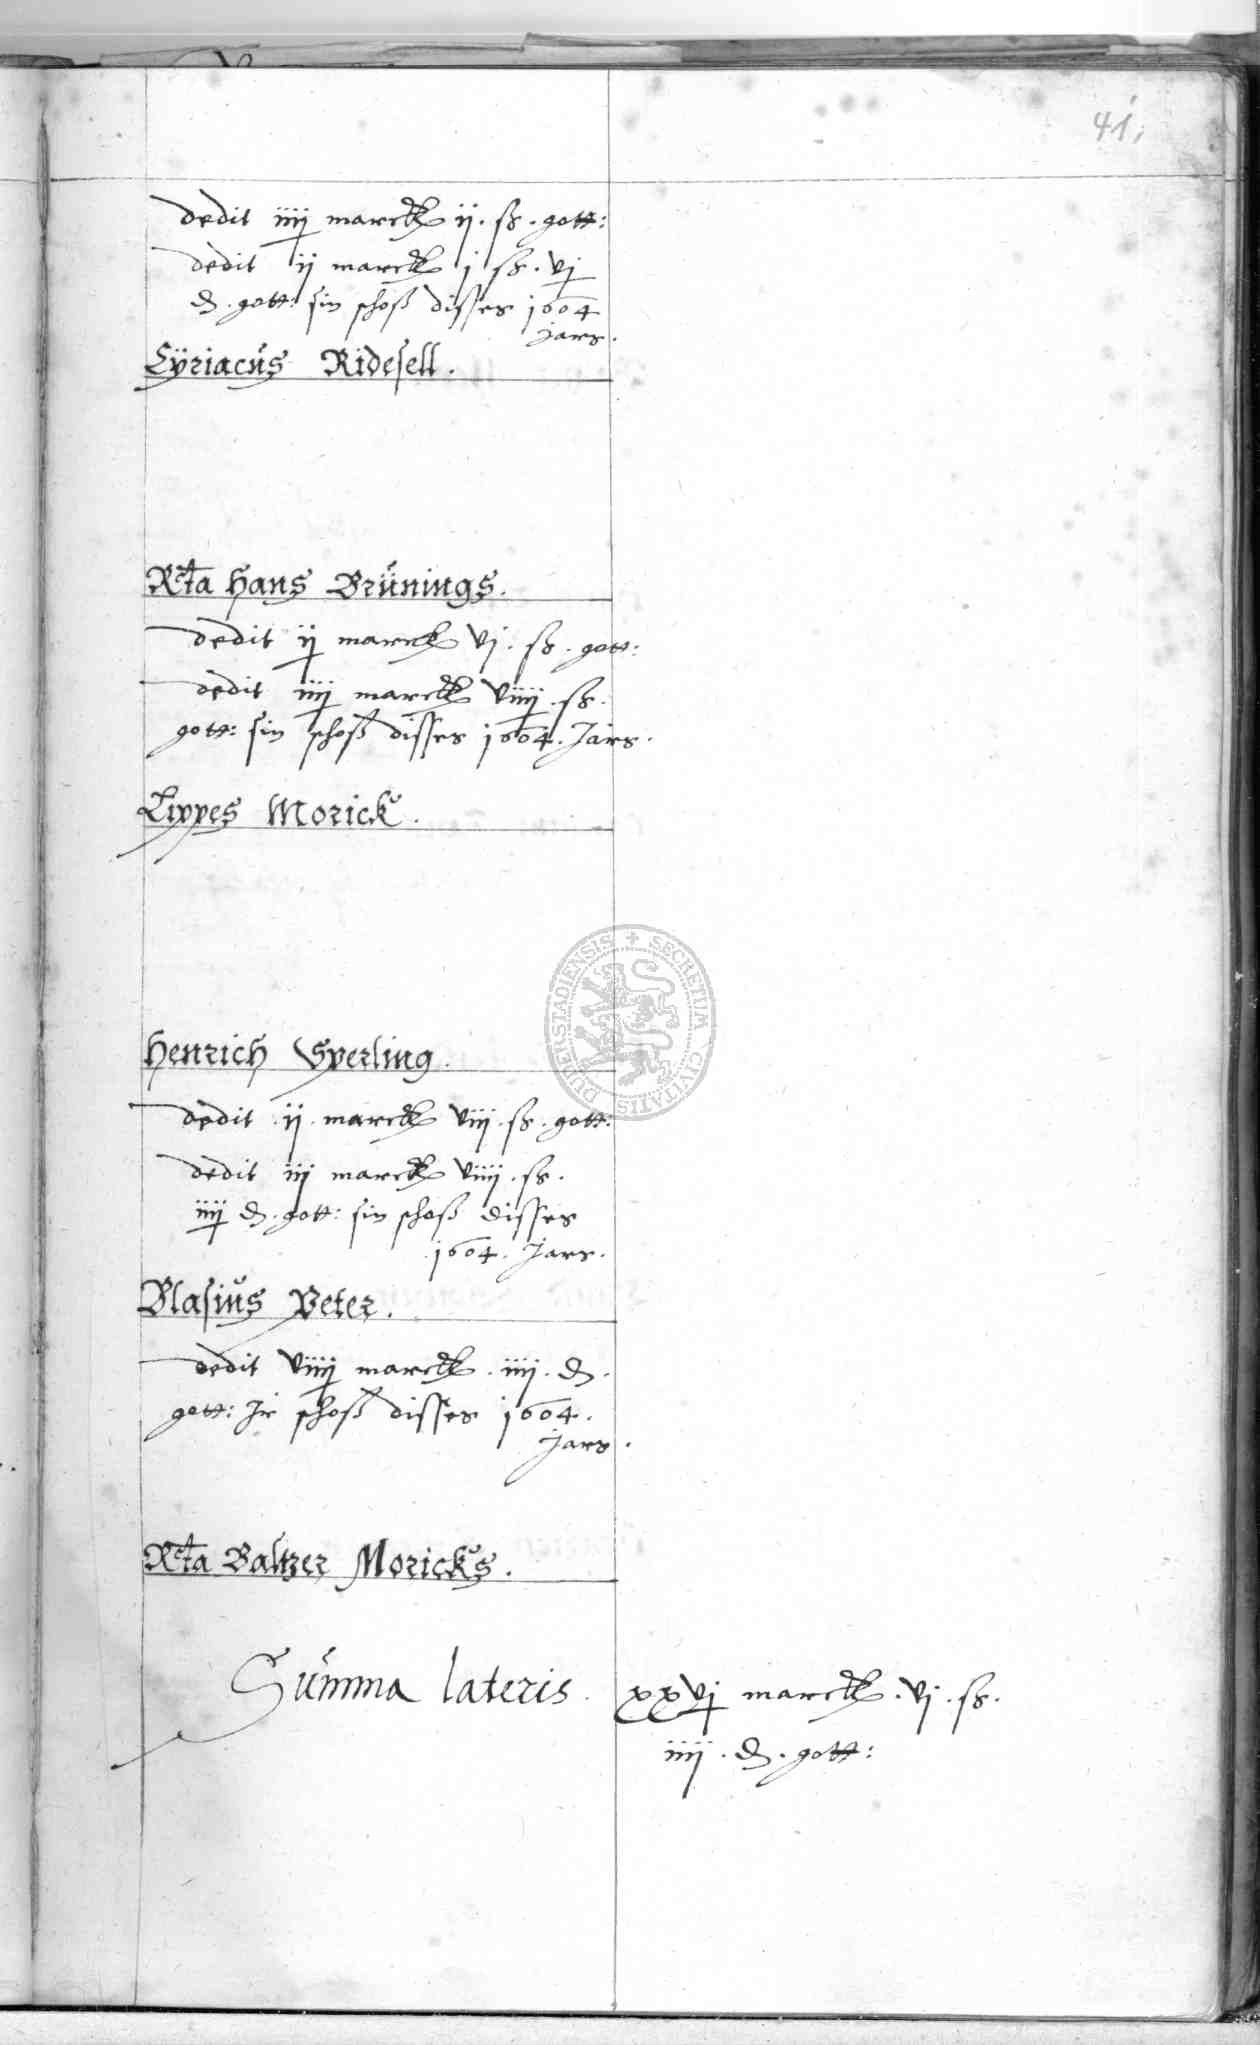 41,
dedit iiij marck ij. ß. gott:
dedit ij marck j ß. vj
d. gott: sin schoß disses 1604
jars.
Cÿriacus Ridesell.
Rcta Hans Brünings.
dedit ij marck vj. ß. gott:
dedit iiij marck viiij. ß.
gott: sin schoß disses 1604. Jars.
Lippes Morick.
Henrich Sperling.
dedit .ij. marck viij. ß. gott:
dedit iij marck viiij. ß.
iiij d. gott: sin schoß disses
.1604. Jars.
Blasius Peter.
dedit viiij marck. iiij. d.
gott: Jr schoß disses 1604.
Jars.
Rcta Baltzer Moricks.
Summa lateris. xxvj marck. vj. ß.
iiij. d. gott:
SECRETUM CIVITATIS DUDERSTADIENSIS